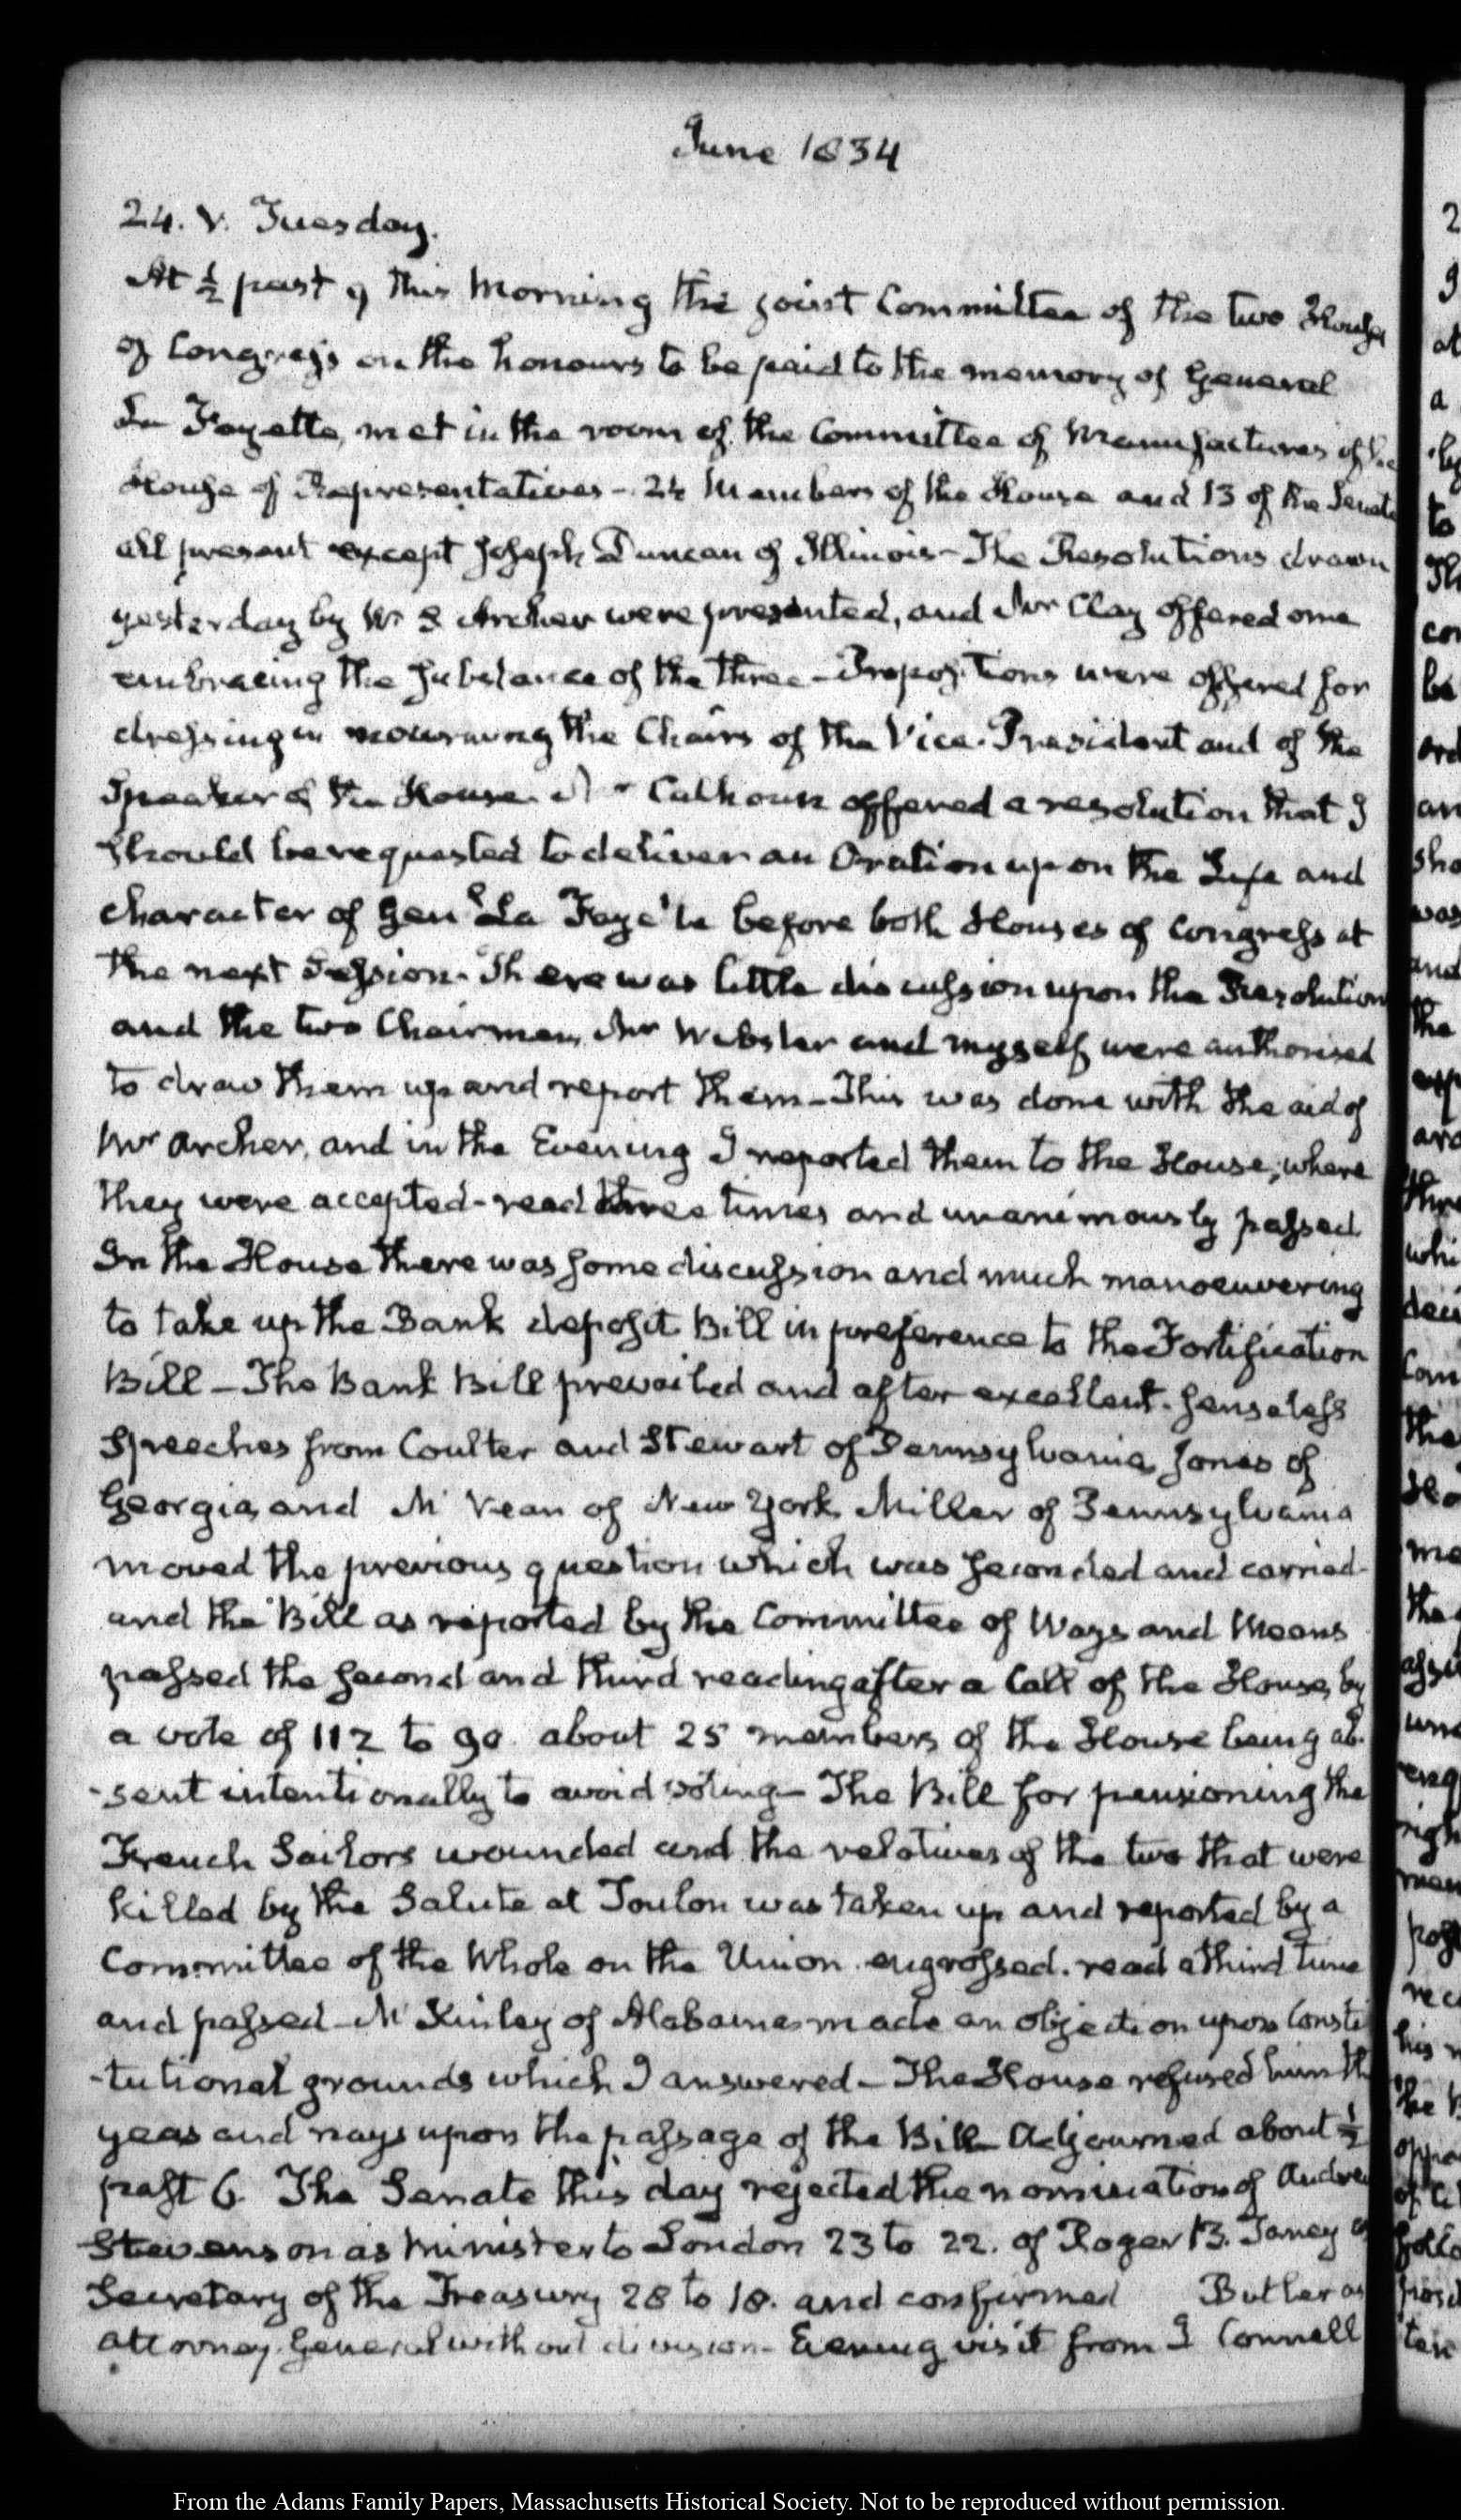 June 1834
24. V. Tuesday.
At ½ past 9 this Morning the joint Committee of the two Houses
of Congress on the honours to be paid to the memory of General
La Fayette, met in the room of the Committee of Manufactures of the
House of Representatives - 24 Members of the House and 13 of the Senate
all present except Joseph Duncan of Illinois - The Resolutions drawn
yesterday by W S Archer were presented, and Mr Clay offered one
embracing the substance of the three - Propositions were offered for
dressing in mourning the Chairs of the Vice-President and of the
Speaker of the House. Mr Calhoun offered a resolution that I
should be requested to deliver an Oration upon the Life and
character of Gen'l La Faye'te before both Houses of Congress at
the next Session. There was little discussion upon the Resolutions
and the two Chairmen, Mr Webster and myself were authorised
to draw them up and report them - This was done with the aid of
Mr Archer, and in the Evening I reported them to the House, where
they were accepted - read three times and unanimously passed
In the House there was some discussion and much manoeuvering
to take up the Bank deposit Bill in preference to the Fortification
Bill - The Bank Bill prevailed and after excellent - senseless
speeches from Coulter and Stewart of Pennsylvania, Jones of
Georgia, and Mc Vean of New York, Miller of Pennsylvania
moved the previous question which was seconded and carried -
and the Bill as reported by the Committee of Ways and Means
passed the second and third reading after a Call of the House, by
a vote of 112 to 90. about 25 members of the House being ab-
-sent intentionally to avoid voting - The Bill for pensioning the
French Sailors wounded and the relatives of the two that were
killed by the Salute at Toulon was taken up and reported by a
Committee of the Whole on the Union. engrossed. read a third time
and passed - Mc Kinley of Alabama made an objection upon Consti
-tutional grounds which I answered - The House refused him the
yeas and nays upon the passage of the Bill - Adjourned about ½
past 6. The Senate this day rejected the nomination of Andrew
Stevenson as Minister to London 23 to 22. of Roger B. Taney as
Secretary of the Treasury 28 to 18. and confirmed Butler as
attorney General without division - Evening visit from J Connell
From the Adams Family Papers, Massachusetts Historical Society. Not to be reproduced without permission.